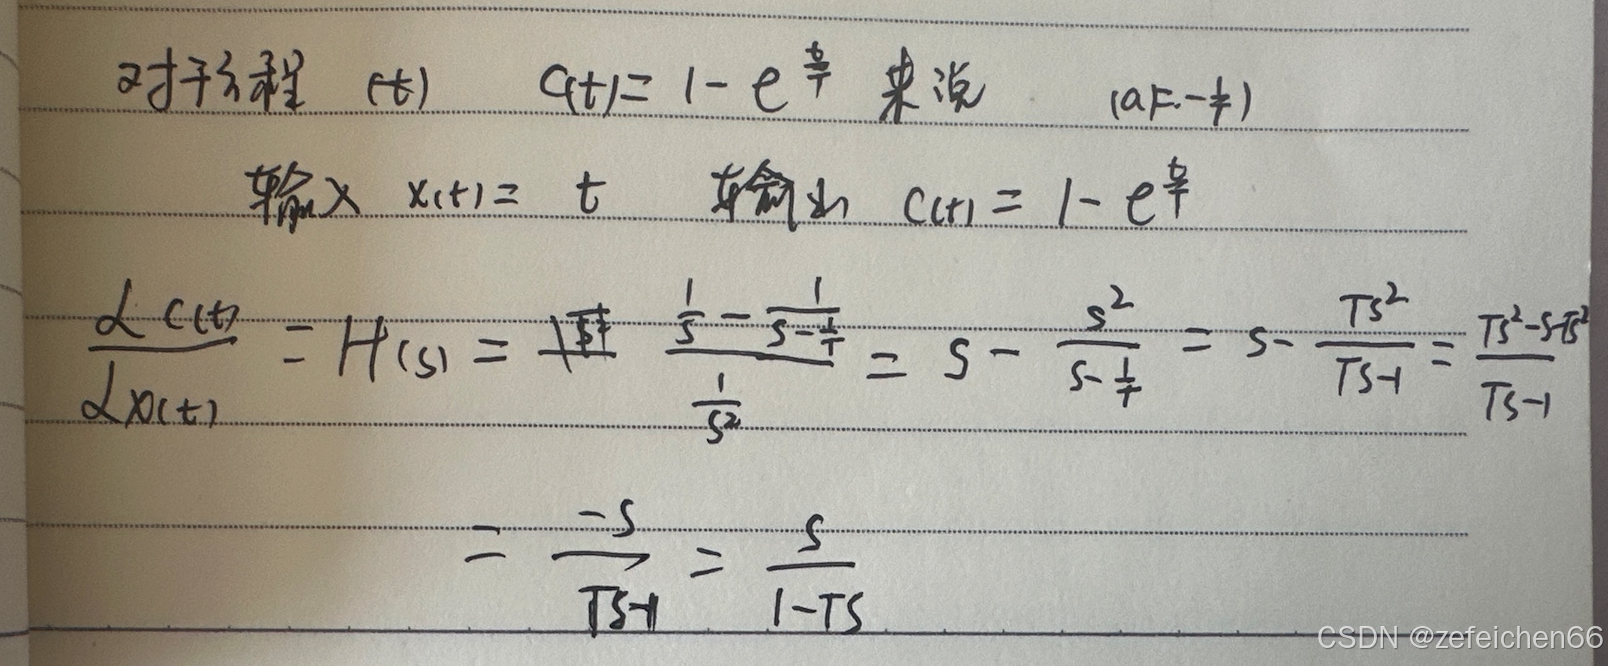 对于方程 (t) C(t)= 1 - e^{t/T} 来说 (a=-1/T)
输入 x(t)= t 输出 C(t) = 1 - e^{t/T}
\frac{ℒ C(t)}{ℒ x(t)} = H(s) = \frac{\frac{1}{s} - \frac{1}{s-\frac{1}{T}}}{\frac{1}{s^2}} = s - \frac{s^2}{s-\frac{1}{T}} = s - \frac{Ts^2}{Ts-1} = \frac{Ts^2-s-Ts^2}{Ts-1}
= \frac{-s}{Ts-1} = \frac{s}{1-Ts}
CSDN @zefeichen66